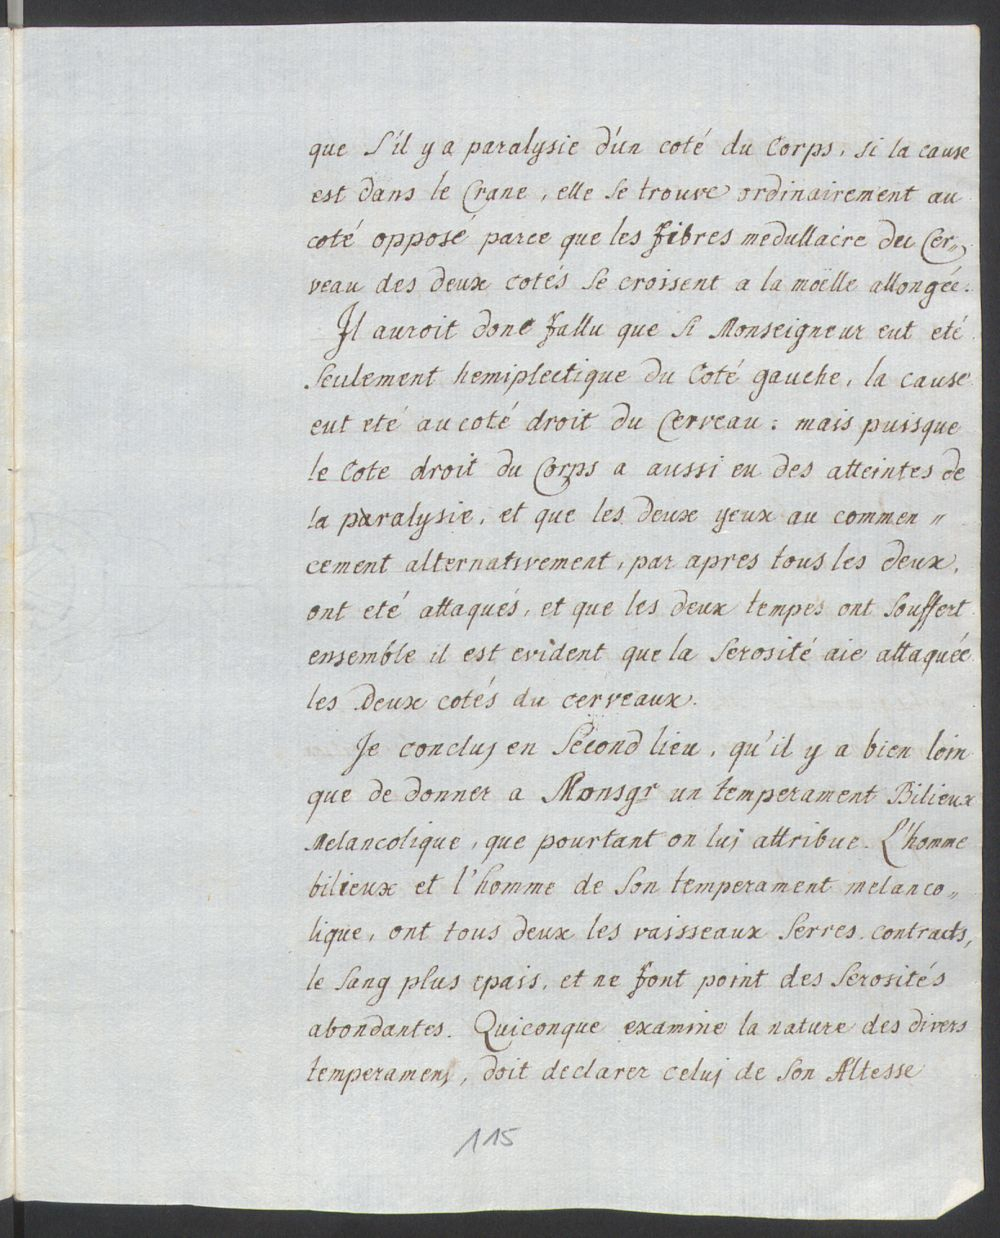 que S'il y a paralysie d'un coté du Corps, si la cause
est dans le Crane, elle se trouve ordinairement au
coté opposé parce que les fibres medullaire du Cer„
veau des deux cotés se croisent a la moëlle allongée.
Il auroit donc fallu que si Monseigneur eut eté
seulement hemiplectique du Coté gauche, la cause
eut eté au coté droit du Cerveau: mais puisque
le Cote droit du Corps a aussi eu des atteintes de
la paralysie, et que les deux yeux au commen„
cement alternativement, par apres tous les deux,
ont eté attaqués, et que les deux tempes ont souffert
ensemble il est evident que la serosité aie attaquée
les deux cotés du cerveaux.
Je conclus en Second lieu, qu'il y a bien loin
que de donner a Monsgr un temperament Bilieux
Melancolique, que pourtant on luj attribue. L'homme
bilieux et l'homme de son temperament melanco„
lique, ont tous deux les vaisseaux serres, contracts,
le sang plus epais, et ne font point des serosités
abondantes. Quiconque examine la nature des divers
temperamens, doit declarer celuj de Son Altesse
115